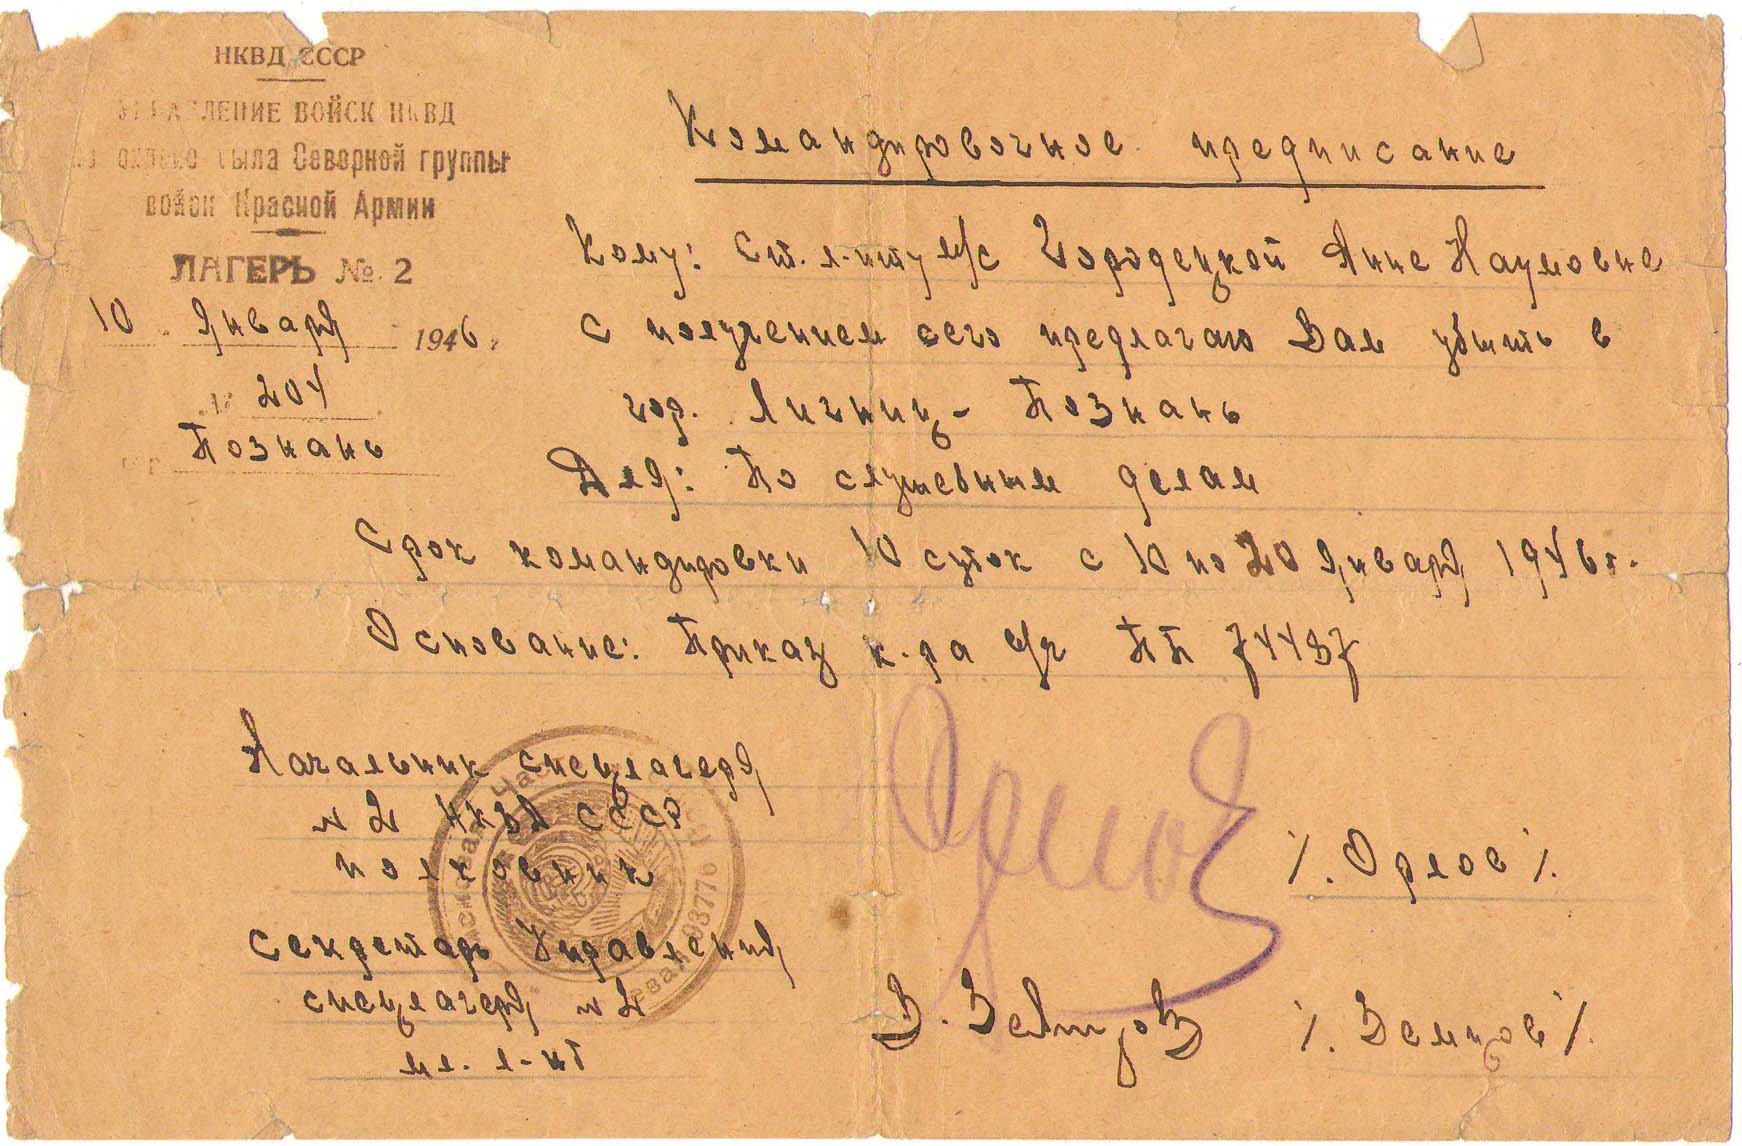 НКВД СССР
УПРАВЛЕНИЕ ВОЙСК НКВД
по охране тыла Северной группы
войск Красной Армии
ЛАГЕРЬ № 2
10 января 1946 г
№ 204
Познань
Командировочное предписание
Кому: Ст. л-нту м/с Городецкой Анне Наумовне
с получением сего предлагаю Вам убыть в
гор. Лигниц - Познань
Для: По служебным делам
Срок командировки 10 суток с 10 по 20 января 1946 г.
Основание: Приказ к-ра в/ч ПП 74437
Начальник спецлагеря
№ 2 НКВД СССР
полковник
Орлов
/. Орлов /.
Секретарь Управления
спецлагеря № 2
мл. л-нт
В. Земцов
/. Земцов /.
03770